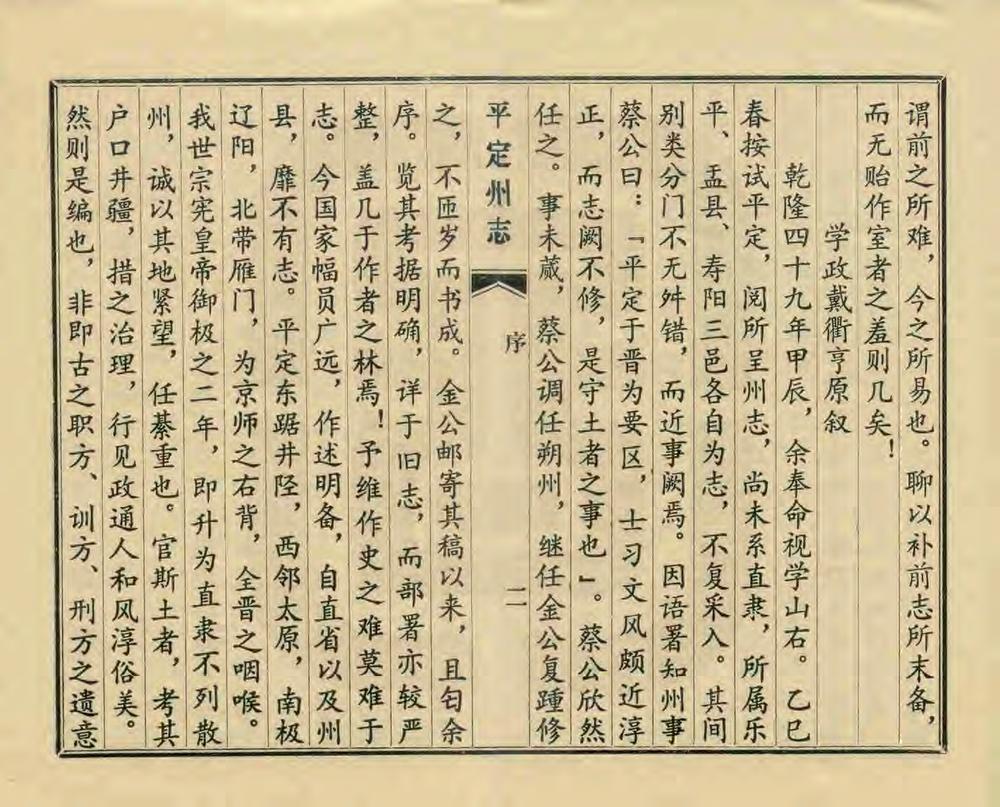 谓前之所难，今之所易也。聊以补前志所未备，
而无贻作室者之羞则几矣！
学政戴衢亨原叙
乾隆四十九年甲辰，余奉命视学山右。乙巳
春按试平定，阅所呈州志，尚未系直隶，所属乐
平、盂县、寿阳三邑各自为志，不复采入。其间
别类分门不无舛错，而近事阙焉。因语署知州事
蔡公曰：「平定于晋为要区，士习文风颇近淳
正，而志阙不修，是守土者之事也」。蔡公欣然
任之。事未蒇，蔡公调任朔州，继任金公复踵修
平定州志
序
二
之，不匝岁而书成。金公邮寄其稿以来，且匄余
序。览其考据明确，详于旧志，而部署亦较严
整，盖几于作者之林焉！予维作史之难莫难于
志。今国家幅员广远，作述明备，自直省以及州
县，靡不有志。平定东踞井陉，西邻太原，南极
辽阳，北带雁门，为京师之右背，全晋之咽喉。
我世宗宪皇帝御极之二年，即升为直隶不列散
州，诚以其地紧望，任綦重也。官斯土者，考其
户口井疆，措之治理，行见政通人和风淳俗美。
然则是编也，非即古之职方、训方、刑方之遗意